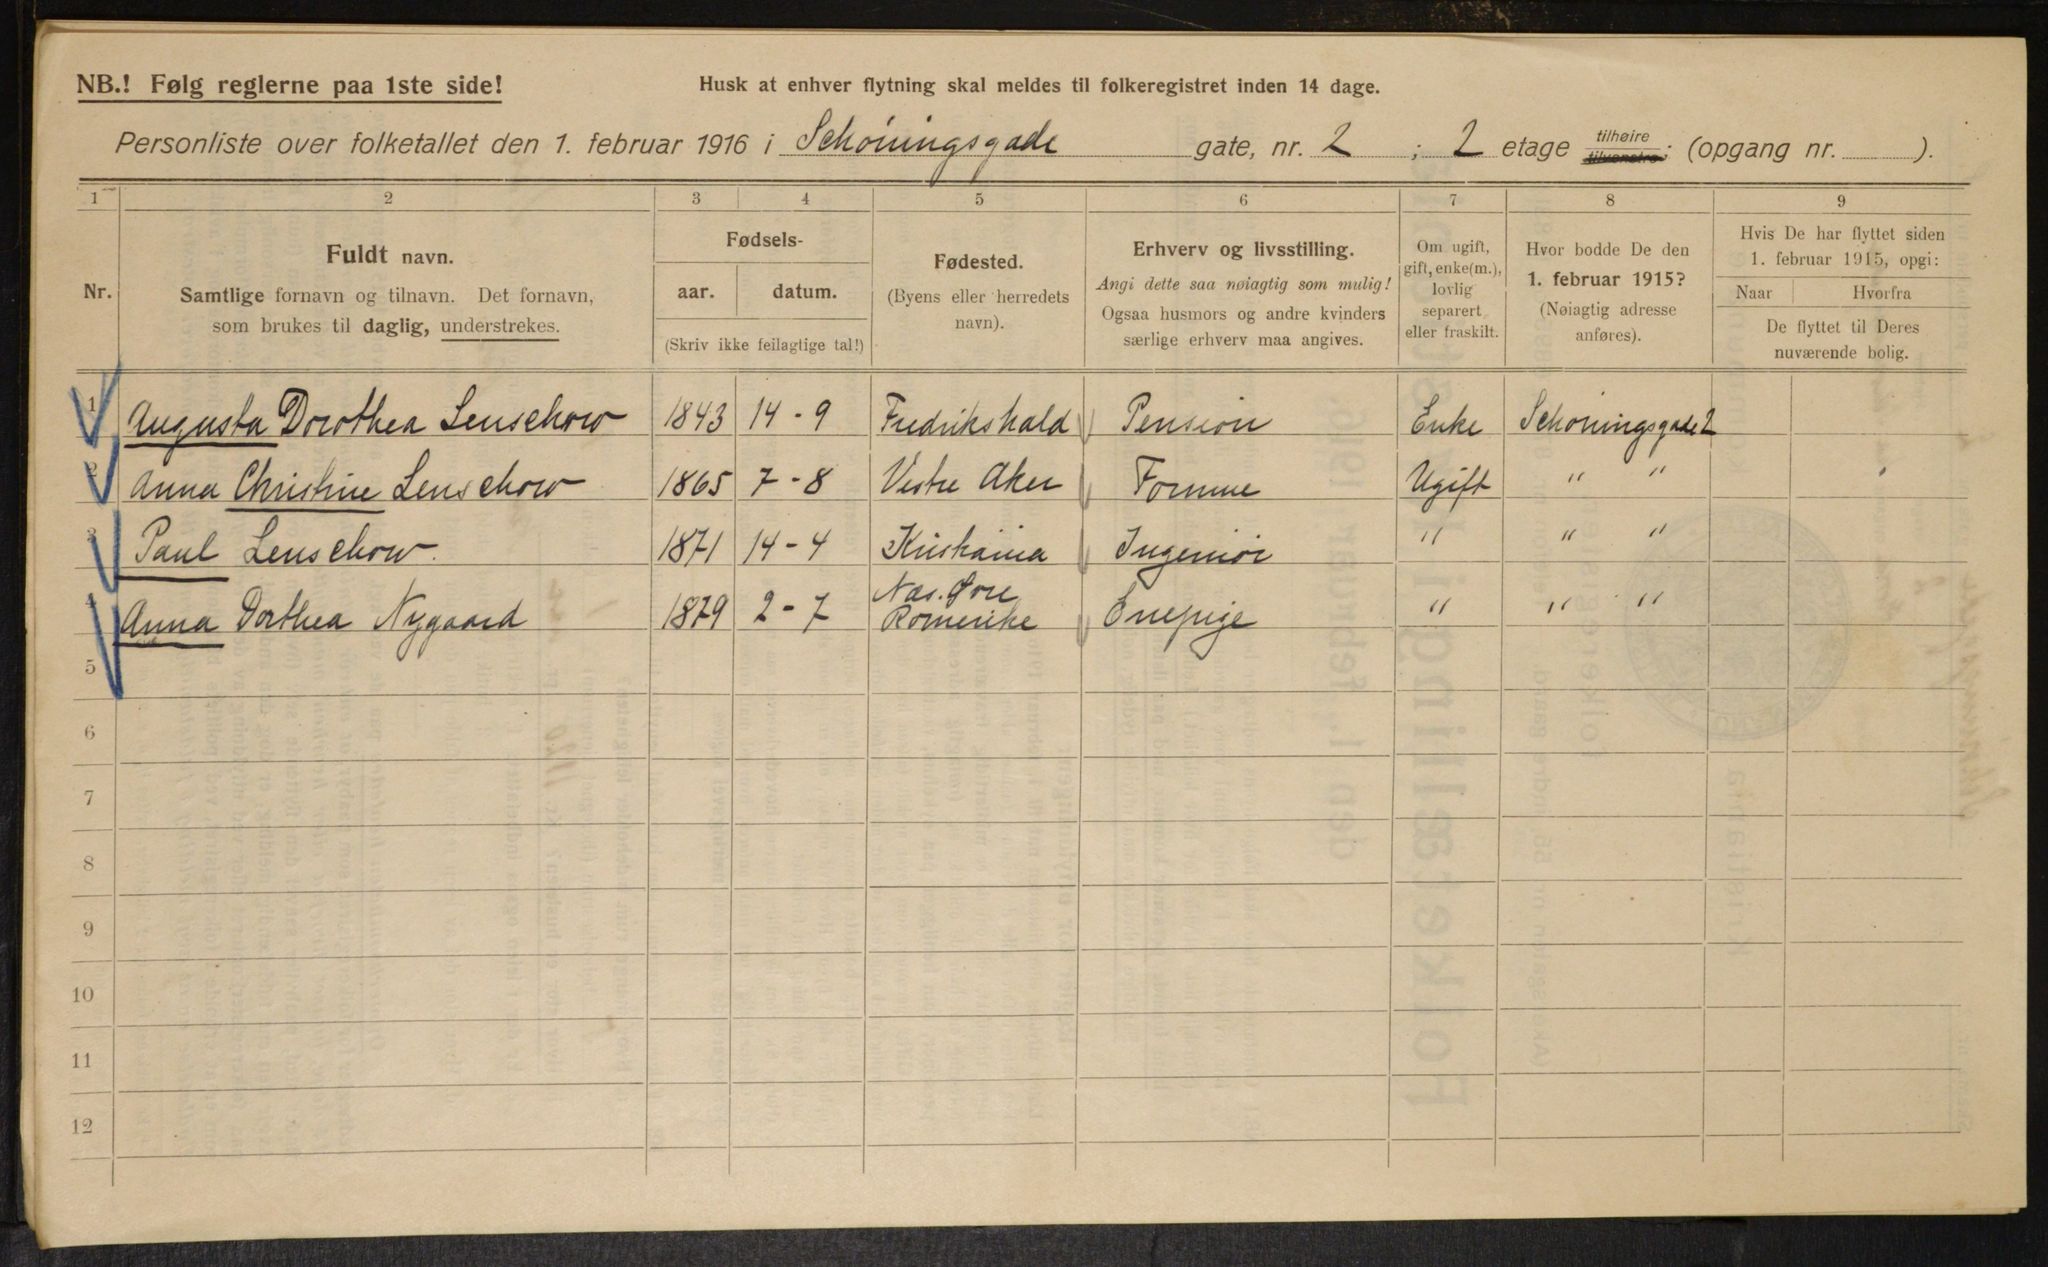 NB.! Følg reglerne paa 1ste side!
Husk at enhver flytning skal meldes til folkeregistret inden 14 dage.
Personliste over folketallet den 1. februar 1916 i Schöningsgade gate, nr. 2 ; 2 etage tilhøire tilvenstre; (opgang nr. ).
1 2 3 4 5 6 7 8 9
Nr.
Fuldt navn.
Samtlige fornavn og tilnavn. Det fornavn,
som brukes til daglig, understrekes.
Fødsels-
aar. datum.
(Skriv ikke feilagtige tal!)
Fødested.
(Byens eller herredets
navn).
Erhverv og livsstilling.
Angi dette saa nøiagtig som mulig!
Ogsaa husmors og andre kvinders
særlige erhverv maa angives.
Om ugift,
gift, enke(m.),
lovlig
separert
eller fraskilt.
Hvor bodde De den
1. februar 1915?
(Nøiagtig adresse
anføres).
Hvis De har flyttet siden
1. februar 1915, opgi:
Naar Hvorfra
De flyttet til Deres
nuværende bolig.
1 Augusta Dorothea Lenschow 1843 14 - 9 Fredrikshald Pension Enke Schöningsgade 2
2 Anna Christine Lenschow 1865 7 - 8 Vestre Aker Ugift " "
3 Paul Lenschow. 1871 14 - 4 Kristiania Ingeniör " " "
4 Anna Dorthea Nygaard 1879 2 - 7 Næs. Øvre Romerike Enepige " " "
5
6
7
8
9
10
11
12